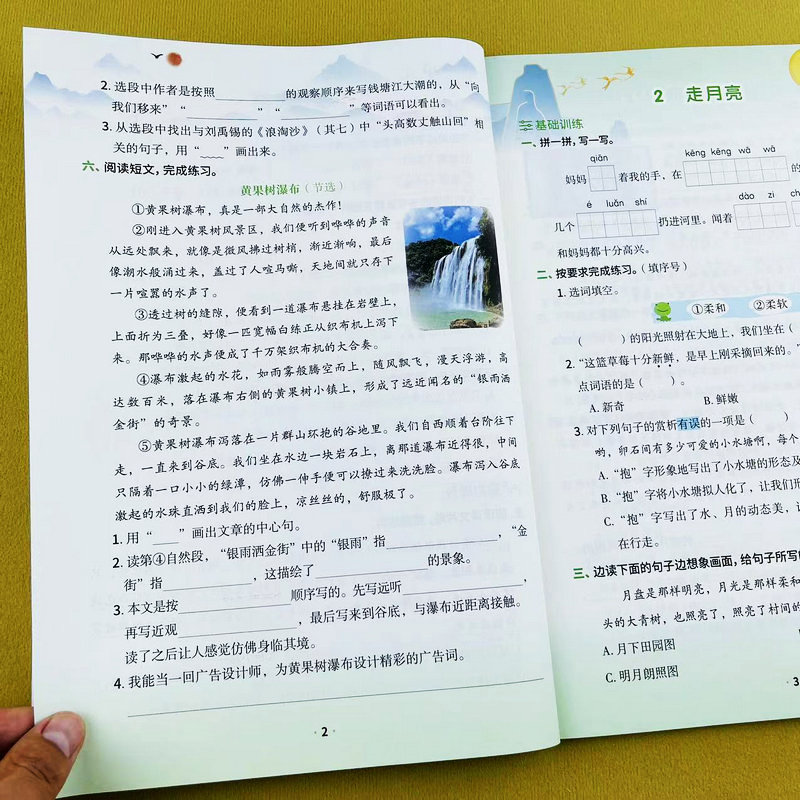 2. 选段中作者是按照________的观察顺序来写钱塘江大潮的，从“向
我们移来”“________”“________”等词语可以看出。
3. 从选段中找出与刘禹锡的《浪淘沙》（其七）中“头高数丈触山回”相
关的句子，用“﹏﹏”画出来。
六、阅读短文，完成练习。
黄果树瀑布（节选）
①黄果树瀑布，真是一部大自然的杰作！
②刚进入黄果树风景区，我们便听到哗哗的声音
从远处飘来，就像是微风拂过树梢，渐近渐响，最后
像潮水般涌过来，盖过了人喧马嘶，天地间就只存下
一片喧嚣的水声了。
③透过树的缝隙，便看到一道瀑布悬挂在岩壁上，
上面折为三叠，好像一匹宽幅白练正从织布机上泻下
来。那哗哗的水声便成了千万架织布机的大合奏。
④瀑布激起的水花，如雨雾般腾空而上，随风飘飞，漫天浮游，高
达数百米，落在瀑布右侧的黄果树小镇上，形成了远近闻名的“银雨洒
金街”的奇景。
⑤黄果树瀑布泻落在一片群山环抱的谷地里。我们自西顺着台阶往下
走，一直来到谷底。我们坐在水边一块岩石上，离那道瀑布近得很，中间
只隔着一口小小的绿潭，仿佛一伸手便可以撩过来洗洗脸。瀑布泻入谷底
激起的水珠直洒到我们的脸上，凉丝丝的，舒服极了。
1. 用“____”画出文章的中心句。
2. 读第④自然段，“银雨洒金街”中的“银雨”指________，“金
街”指________，这描绘了________的景象。
3. 本文是按________顺序写的。先写远听________，
再写近观________，最后写来到谷底，与瀑布近距离接触。
读了之后让人感觉仿佛身临其境。
4. 我能当一回广告设计师，为黄果树瀑布设计精彩的广告词。
· 2 ·
2 走月亮
基础训练
一、拼一拼，写一写。
qiān kēng kēng wā wā
妈妈 着我的手，在 的
é luǎn shí dào zi
几个 扔进河里。闻着
和妈妈都十分高兴。
二、按要求完成练习。（填序号）
1. 选词填空。
①柔和 ②柔软
（ ）的阳光照射在大地上，我们坐在（
2. “这篮草莓十分新鲜，是早上刚采摘回来的。”
点词语的是（ ）。
A. 新奇 B. 鲜嫩
3. 对下列句子的赏析有误的一项是（ ）
哟，卵石间有多少可爱的小水塘啊，每个
A. “抱”字形象地写出了小水塘的形态及
B. “抱”字将小水塘拟人化了，让我们形
C. “抱”字写出了水、月的动态美，让
在行走。
三、边读下面的句子边想象画面，给句子所写
月盘是那样明亮，月光是那样柔和
头的大青树，也照亮了，照亮了村间的
A. 月下田园图
C. 明月朗照图
· 3